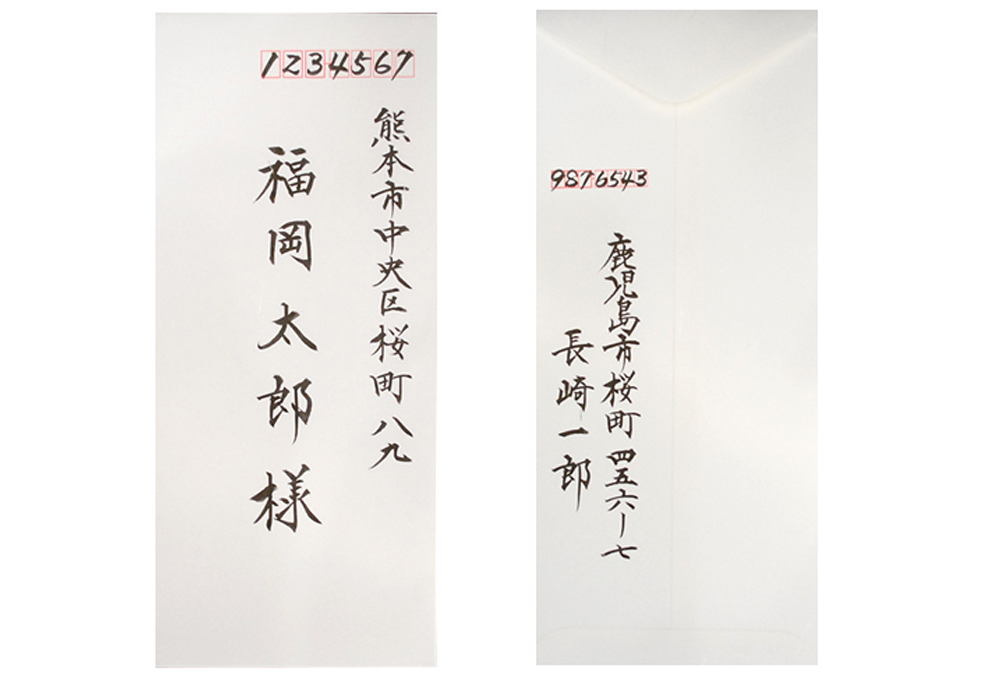 1234567
熊本市中央区桜町八九
福岡太郎様
9876543
鹿児島市桜町四五六ー七
長崎一郎